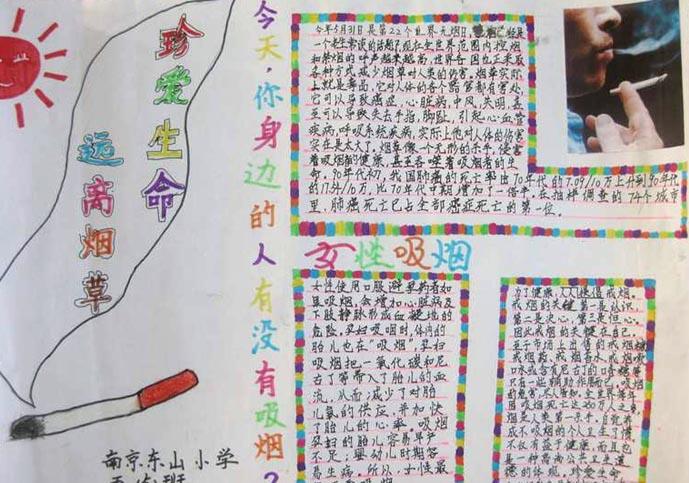 珍爱生命
远离烟草
今天,你身边的人有没有吸烟?
今年5月31日是第22个世界无烟日,
一个老生常谈的话题?现在全世界范围内控烟
和禁烟的呼声越来越高,世界各国也正采取
各种方式减少烟草对人类的伤害。烟草实际
上就是毒品,它对人体的各个器官都有害处,
它可以导致癌症,心脏病,中风,失明,甚
至可以导致失去手指,脚趾,引起心血管
疾病,呼吸系统疾病,实际上他对人体的伤害
实在是太大了。烟草像一个无形的杀手,侵害
着吸烟者的健康,甚至吞噬着吸烟者的生
命。90年代初,我国肺癌的死亡率由70年代的7.09/10万上升到90年代
的17.5/10万,比70年代中期增加了一倍半。在抽样调查的74个城市
里,肺癌死亡已占全部癌症死亡的第一位。
女性吸烟
女性使用口服避孕药者如
果吸烟,会增加心脏病及
下肢静脉形成血梗地的
危险,孕妇吸咽时,体内的
胎儿也在“吸烟”,孕妇
吸烟把一氧化碳和尼
古丁等带入了胎儿的血
流,从而减少了对胎
儿氧的供应,并加快
了胎儿的心率。吸烟
孕妇的胎儿容易早产
不足;婴幼儿时期容
易生病。所以,女性最
为了健康,人人提倡戒烟。
戒烟的关键第一是认识
第二是决心,第三是恒心。
因此戒烟的关键在自己,
至于市场上出售的戒烟糖
戒烟药,戒烟香水,戒烟
只有一些辅助作用而已。吸烟
的危害,尽人皆知。全世界每年
因吸烟死亡达250万人之多,
烟是人类第一杀手。自觉养
成不吸烟的个人卫生习惯,
不仅有益于健康,而且也
是一种高尚公共卫生道
德的体现,珍爱生命
南京东山小学